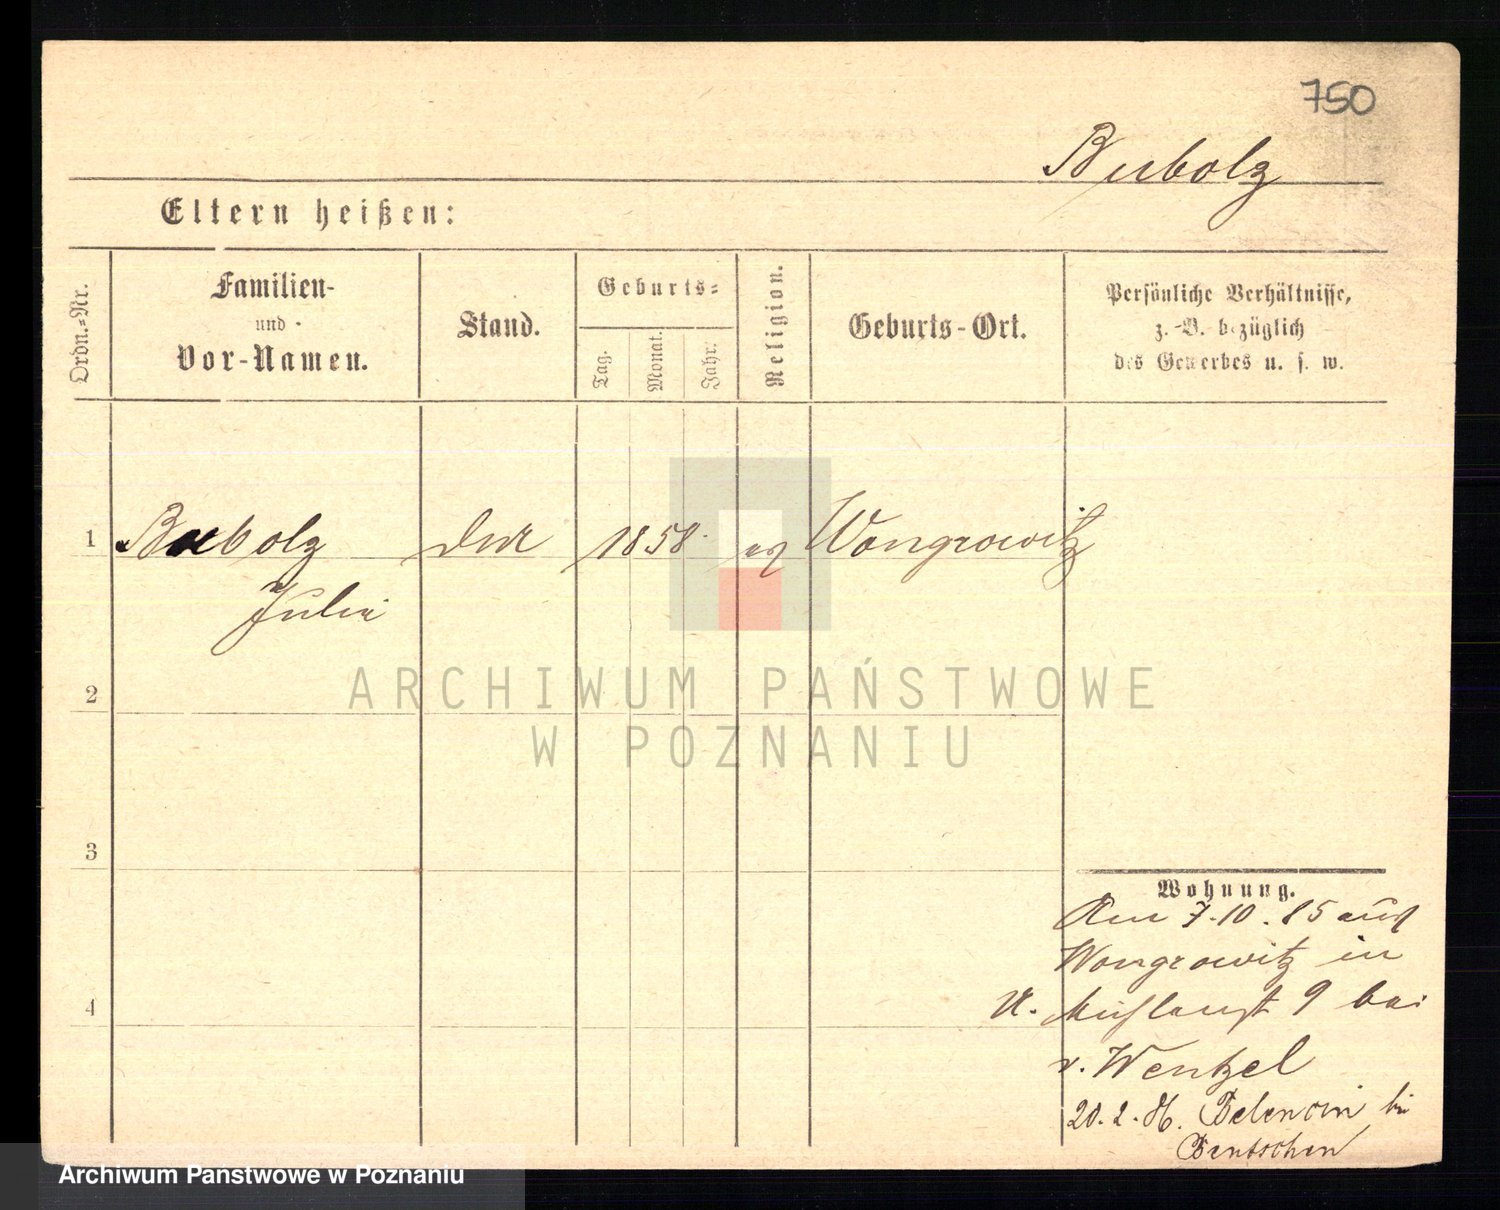 750
Bubolz
Eltern heißen:
Ordn.=Nr.
Familien-
und
Vor-Namen.
Stand.
Geburts=
Tag.
Monat.
Jahr.
Religion.
Geburts-Ort.
Persönliche Verhältnisse,
z. B. bezüglich
des Gewerbes u. s. w.
1 Bubolz 1858 Wongrowitz
Julie
ARCHIWUM PAŃSTWOWE
W POZNANIU
2
3
4
Wohnung.
Am 7.10.85 aus
Wongrowitz in
9 bei
v. Wentzel
20.2.86. Belencin bei
Bentschen
Archiwum Państwowe w Poznaniu